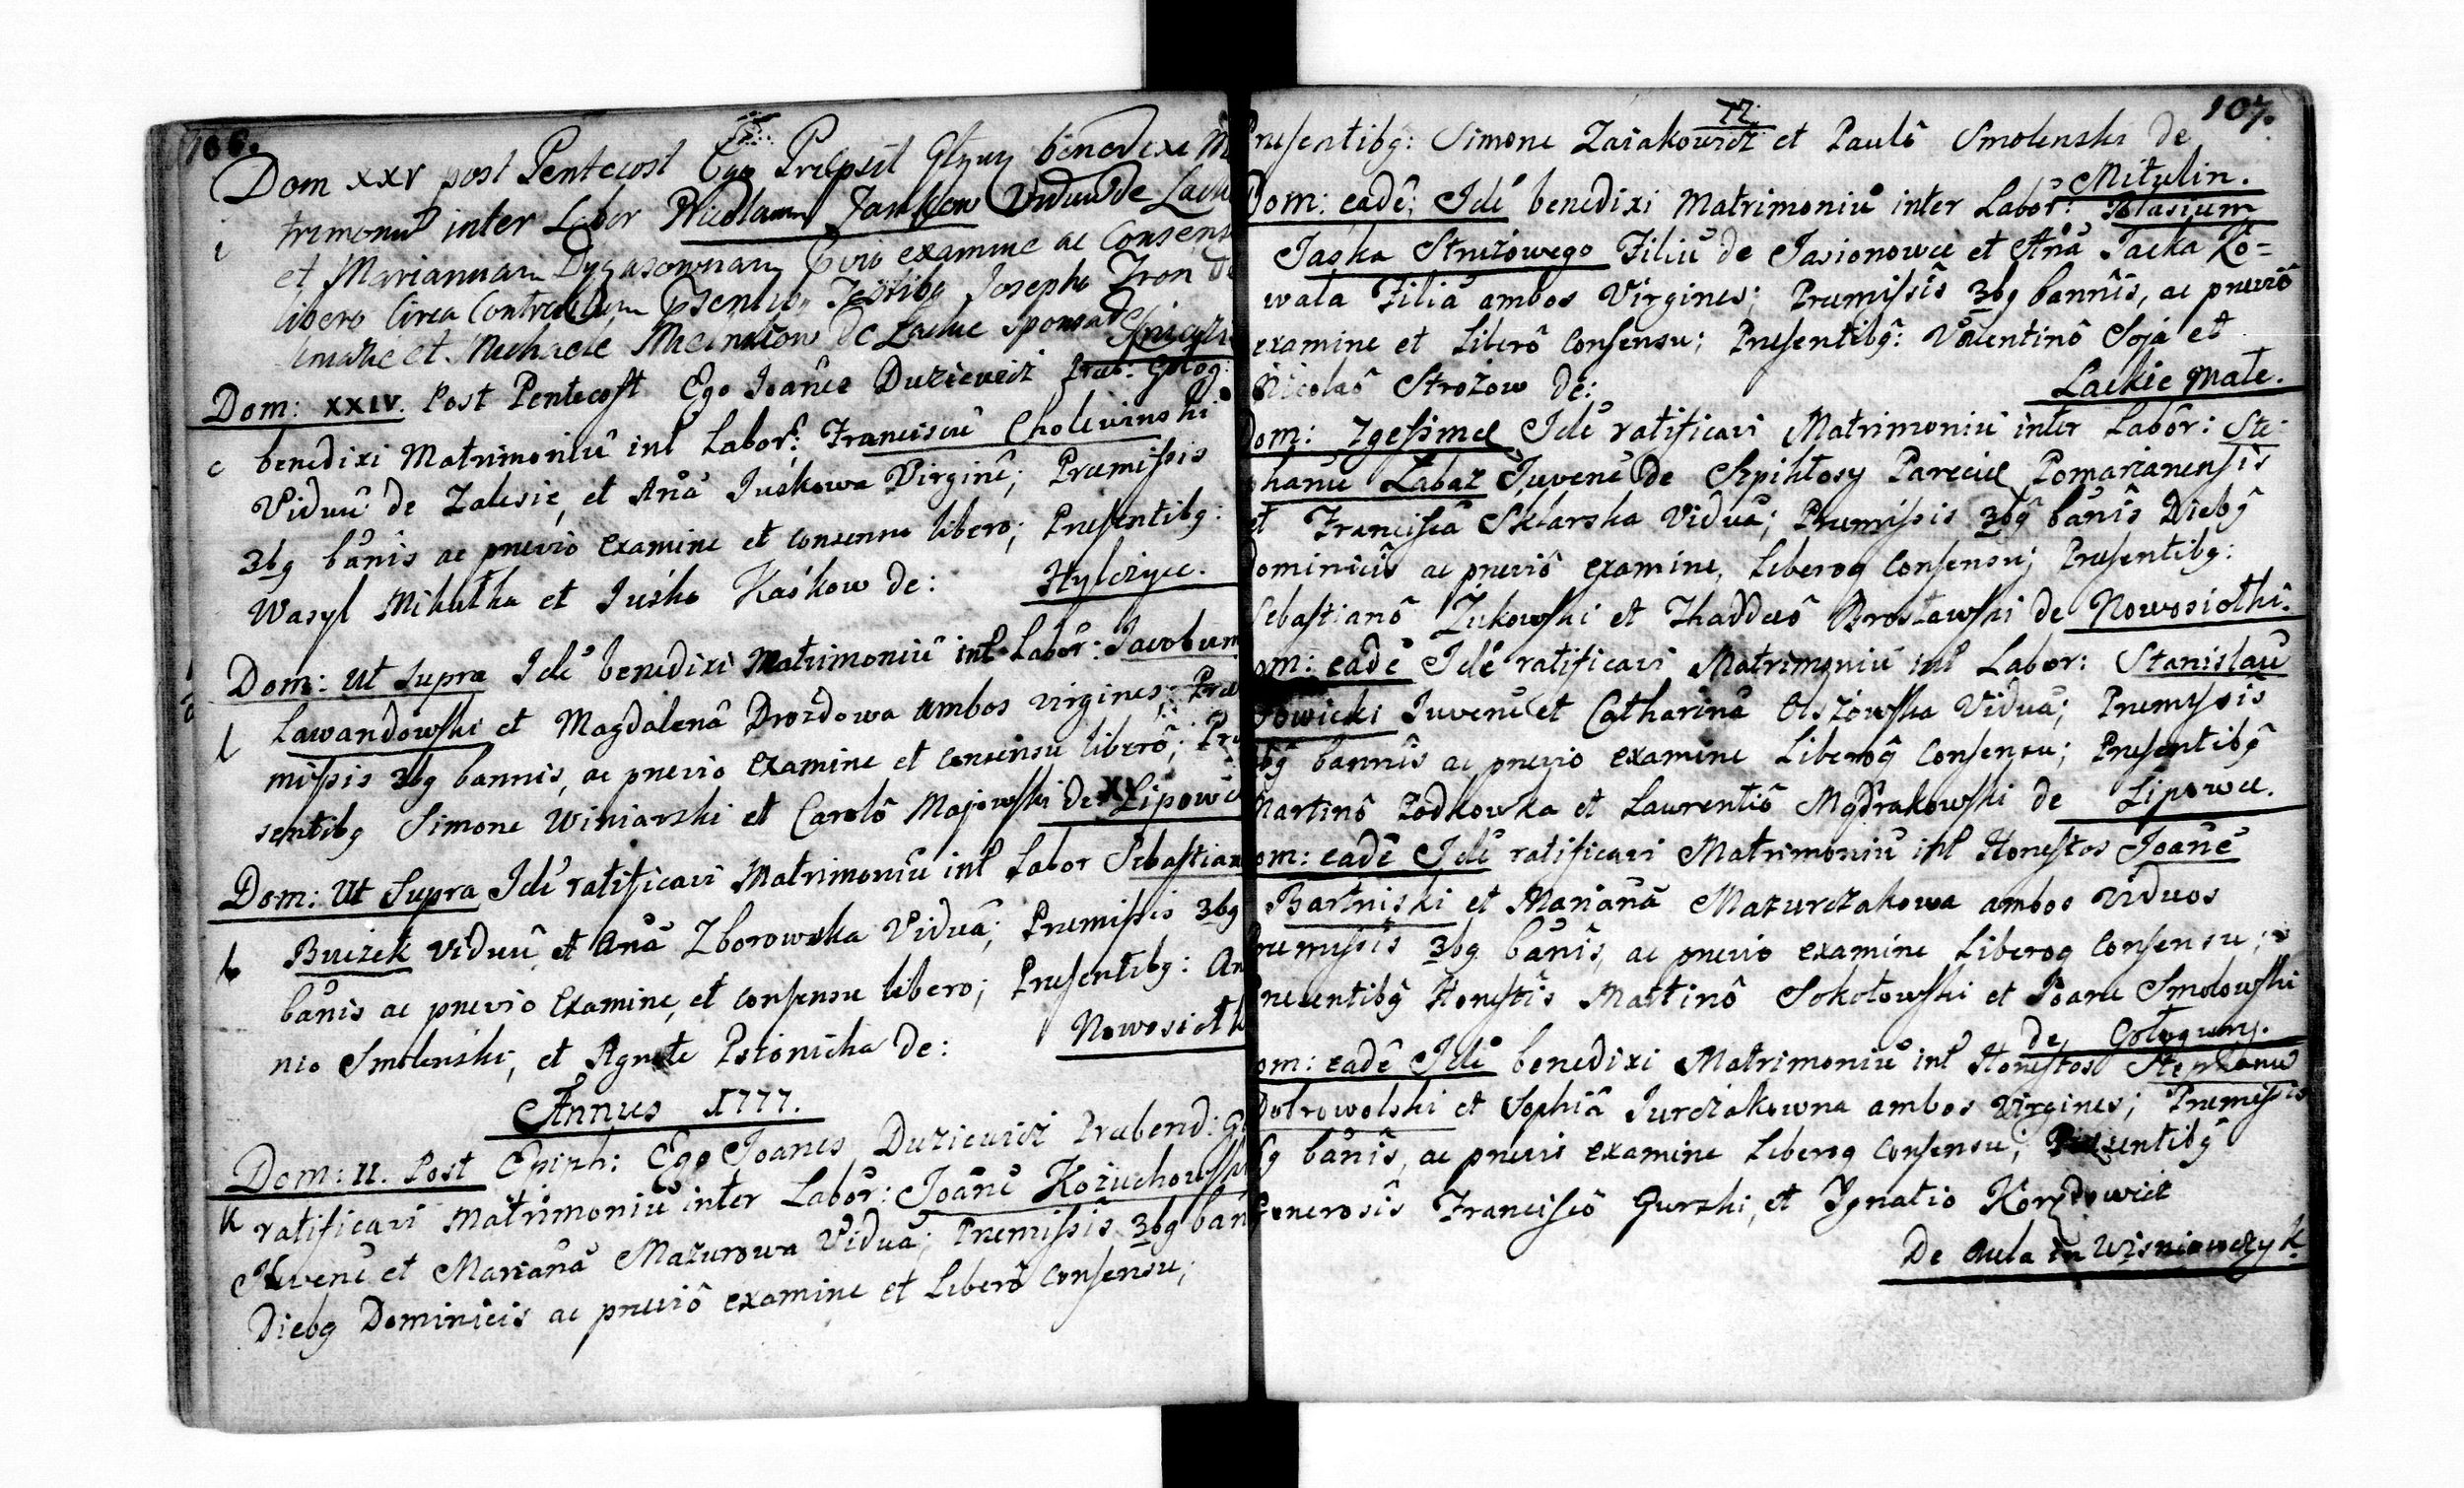 106.
Dom XXV post Pentecost Ego Prepsit Glguy benedixi M
i trimoniu inter Labor Nicolaum Jankow Viduu de Lacki
et Mariannam Dygasownam Pvio examine ac Consens
libero circa Contractum Psentibg Testibg Josepho Iron de
et Michaele Mielnikow de Lackie
Dom: XXIV. Post Pentecost Ego Joanes Duziewicz Prab: Golog:
c benedixi Matrimoniû int Labor: Franciscû Cholewinski
Viduû de Zalesie, et Anâ Juskowa Virginê; Præmissis
3bg bânis ac prævio examine et consensu libero; Præsentibg:
Wasyl Mikutka et Jusko Kaśkow de: Hylczyce.
Dom: Ut supra Idē benedixi Matrimoniû int Labôr: Jacobum
l Lawandowski et Magdalenâ Drozdowa ambos virgines; Præ
missis 3bg bannis, ac prævio examine et consensu liberô; Præ
sentibg Simone Winiarski et Carolô Majowski de Lipowc
Dom: Ut Supra Idē ratificavi Matrimoniû int Labor Sebastian
b Buczek viduû et Anâ Zborowska Viduâ; Præmissis 3bg
bânis ac prævio examine, et consensu libero; Præsentibg: An
nio Smolenski, et Agnete Psionicka de: Nowosiolk
Annus 1777.
Dom: II. Post Epiph: Ego Joanes Duziewicz Præbend: G
k ratificavi Matrimoniû inter Labôr: Joânê Kozuchowski
Juvenê et Marianâ Mazurowa Viduâ; Præmissis 3bg ban
Diebg Dominicis ac præviô examine et Liberô consensu;
77. 107.
Præsentibg: Simone Zaiakowicz et Paulô Smolenski de
Mitulin.
Dom: eadê; Idē benedixi Matrimoniû inter Labôr:
Jaska Strużowego Filiû de Jasionowce et Anâ Jacka Ko=
wala Filiâ ambos Virgines; Præmissîs 3bg bannîs, ac præviô
examine et Liberô Consensu; Præsentibg: Valentinô Soja et
Nicolaô Strożow de: Lackie Małe.
Dom: 7gesimæ Idē ratificavi Matrimoniû inter Labôr: Ste-
phanû Łabaz Juvenê de Szpiklosy Pareciæ Pomarzanensîs
et Franciscâ Sklarska Viduâ; Præmissis 3bg bânîs Diebg
Dominicîs ac præviô examine, Liberoq Consensu; Præsentibg:
Sebastianô Zukowski et Thaddeô Brosławski de Nowosiołki.
Dom: eadê Idē ratificavi Matrimoniû int Labor: Stanislaû
Sowicki Juvenê et Catharinâ Olszowska Viduâ; Præmyssîs
3bg bannîs ac prævio examine Liberoq Consensu; Præsentibg
Martinô Podkowka et Laurentiô Modrakowski de Lipowce.
Dom: eadê Idē ratificavi Matrimoniû int Honestos Joânê
Bartniski et Marianâ Mazurczakowa ambos viduos
Præmyssîs 3bg bânîs, ac prævio examine Liberoq Consensu;
Præsentibg Honestîs Martinô Sokołowski et Joane Smolowski
de Gołogury.
Dom: eadê Idē benedixi Matrimoniû int Honestos Stephanû
Dobrowolski et Sophiâ Jurczakowna ambos virgines; Præmissis
3bg bânîs, ac prævio examine Liberoq Consensu; Præsentibg
Generosîs Franciscô Gurski, et Ygnatio Korydowicz
De Aula in Wisniowczyk